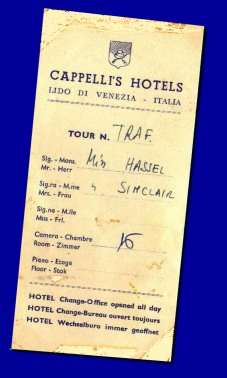 CAPPELLI'S HOTELS
LIDO DI VENEZIA - ITALIA
TOUR N. TRAF.
Sig. - Mons. Miss HASSEL
Mr. - Herr
Sig.ra - M.me " SINCLAIR
Mrs. - Frau
Sig.na - M.lle
Miss - Frl.
Camera - Chambre 16
Room - Zimmer
Piano - Etage
Floor - Stok
HOTEL Change-Office opened all day
HOTEL Change-Bureau ouvert toujours
HOTEL Wechselburo immer geoffnet